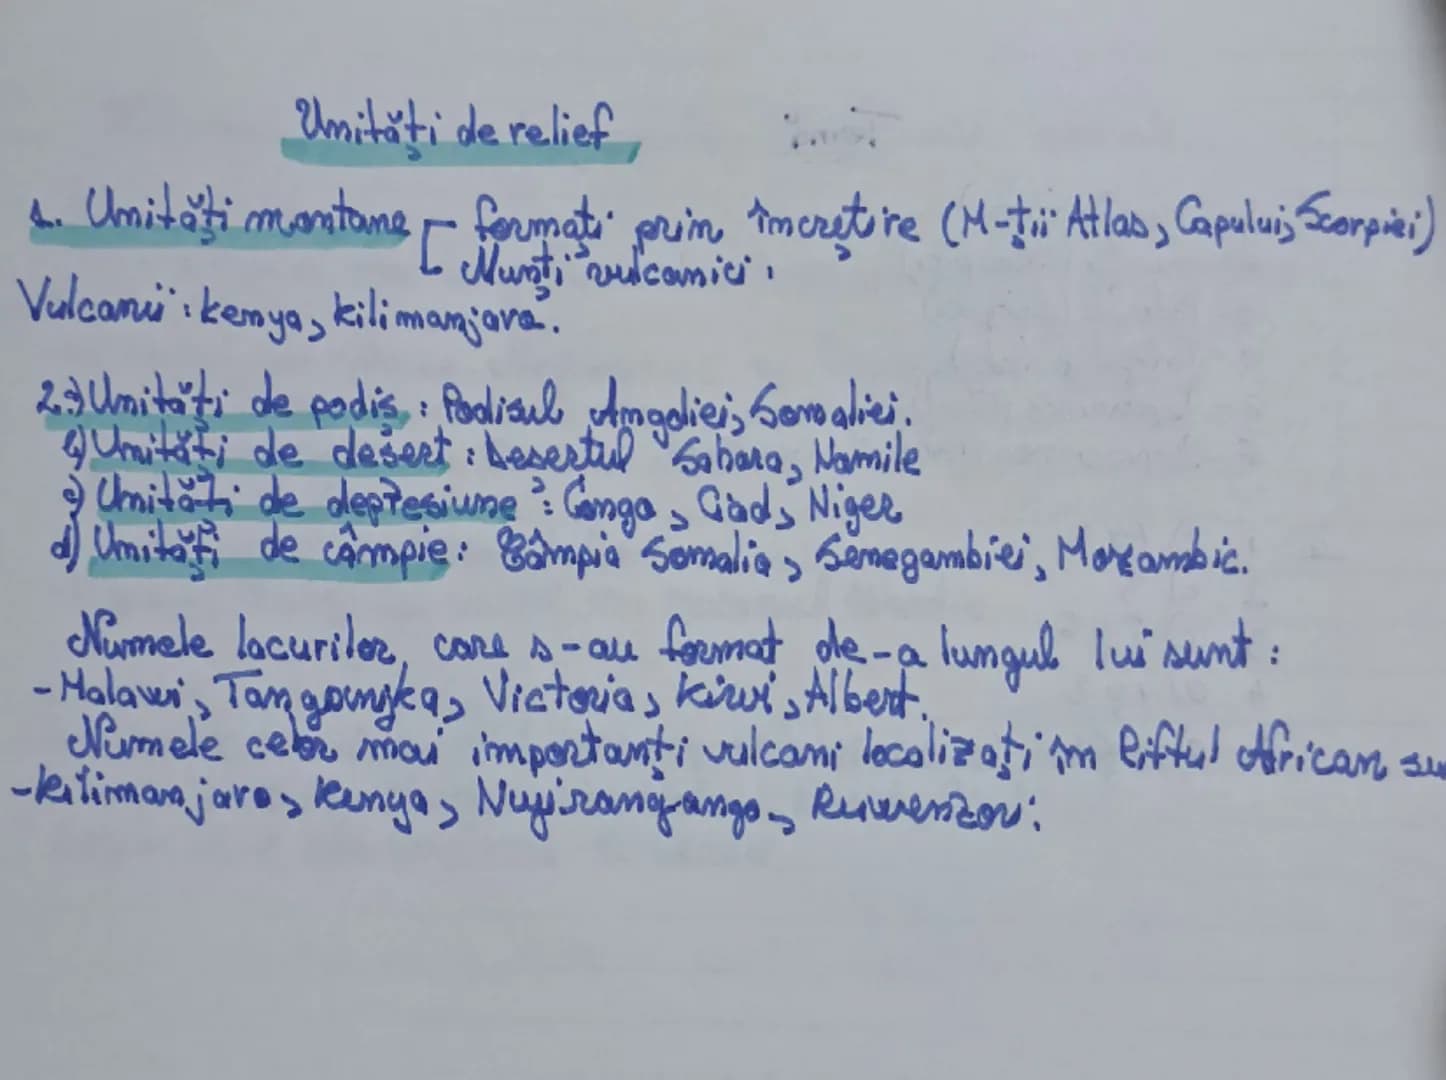 Unități de relief
1. Unități montane formați prin încrețire (M-ții Atlas, Capului, Scorpiei)
Munți vulcanici.
Vulcanii: kenya, kilimanjaro.
2.a) Unități de podiș: Podisul Angoliei, Somaliei.
b) Unități de desert: Desertul Sahara, Namile
c) Unități de depresiune: Congo, Ciad, Niger
d) Unități de câmpie: Câmpia Somalia, Senegambiei, Mozambic.
Numele lacurilor, care s-au format de-a lungul lui sunt:
-Malawi, Tanganyka, Victoria, Kiwi, Albert.
Numele celor mai importanți vulcani localizați în Riftul African su
-Kilimanjaro, Kenya, Nuyirangango, Ruwenzori: